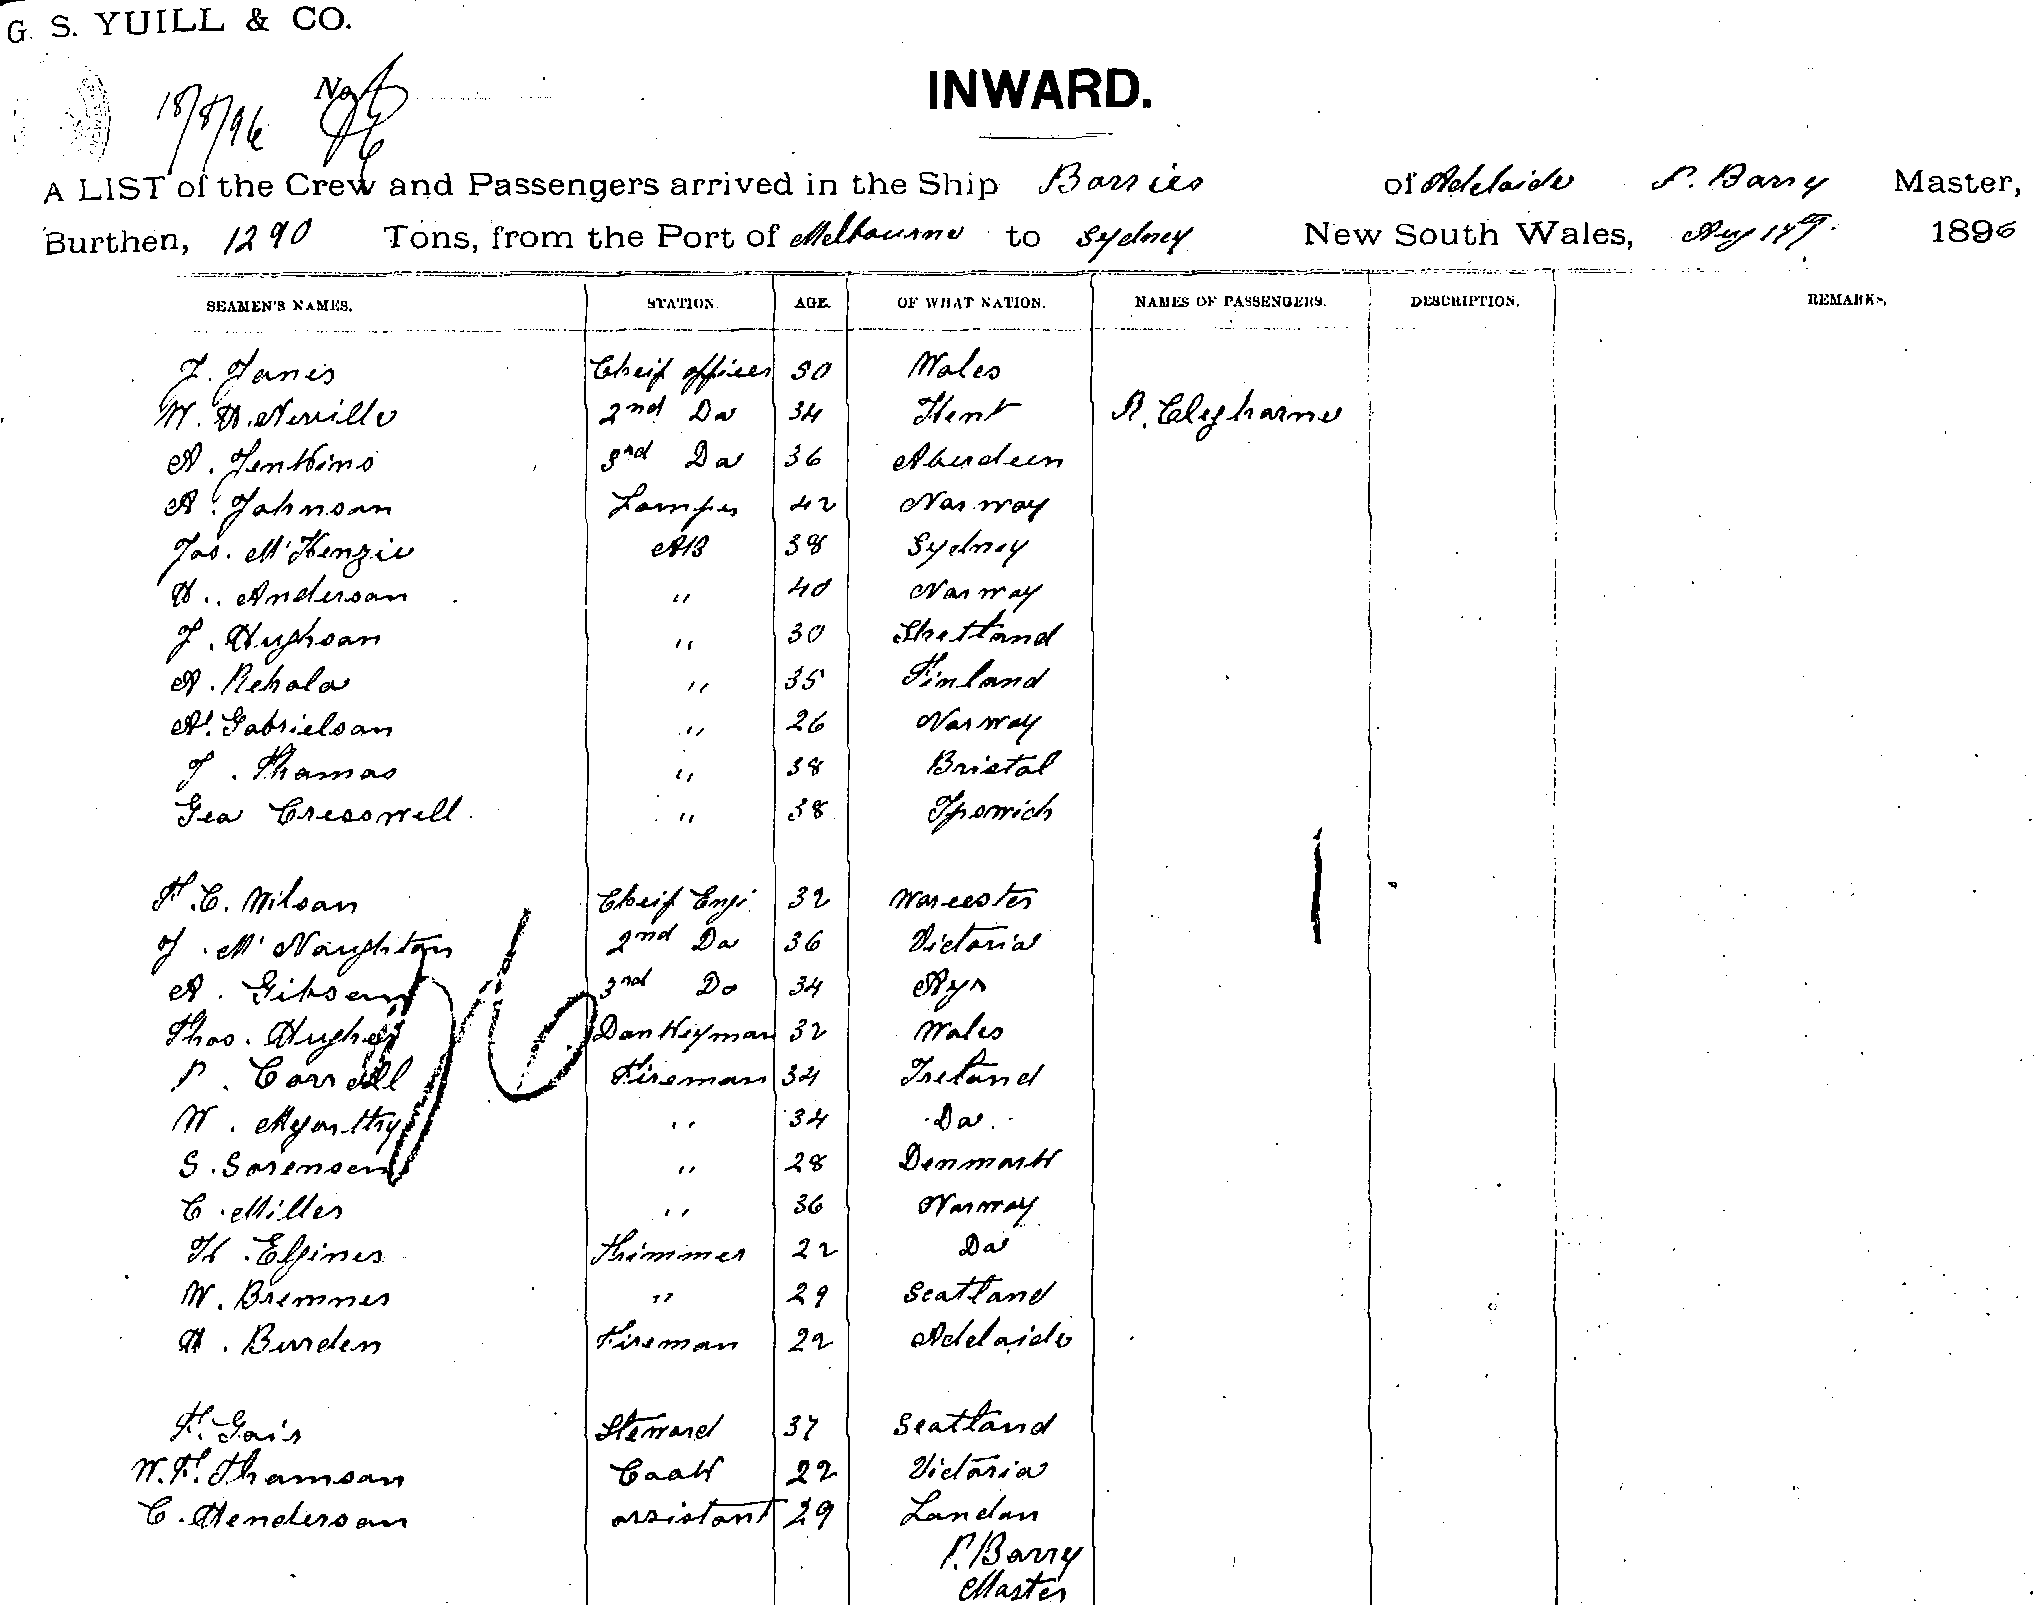 G. S. YUILL & CO.
18/8/96 No
INWARD.
A LIST of the Crew and Passengers arrived in the Ship Barrier of Adelaide P. Barry Master,
Burthen, 1290 Tons, from the Port of Melbourne to Sydney New South Wales, Aug 18th 1896
SEAMEN'S NAMES. STATION. AGE. OF WHAT NATION. NAMES OF PASSENGERS. DESCRIPTION. REMARKS.
J. Jones Cheif officer 50 Wales
W. H. Neville 2nd Do 34 Kent R. Cleghorne
A. Jenkins 3rd Do 36 Aberdeen
A. Johnson Lamps 42 Norway
Jas. McKenzie AB 38 Sydney
H. Anderson " 40 Norway
J. Hughson " 30 Shetland
A. Rehola " 35 Finland
A. Gabrielson " 26 Norway
J. Thomas " 38 Bristol
Geo Cresswell " 38 Ipswich
F. C. Wilson Cheif Engi 32 Worcester
J. McNaughton 2nd Do 36 Victoria
A. Gibson 3rd Do 34 Ayr
Thos. Hughes Donkeyman 32 Wales
P. Correll Fireman 34 Ireland
W. Mycarthy " 34 Do
S. Sorensen " 28 Denmark
C. Miller " 36 Norway
H. Elgines Trimmer 22 Do
W. Bremner " 29 Scotland
H. Burden Fireman 22 Adelaide
F. Gair Steward 37 Scotland
W. F. Thomson Cook 22 Victoria
C. Henderson assistant 29 London
P. Barry
Master